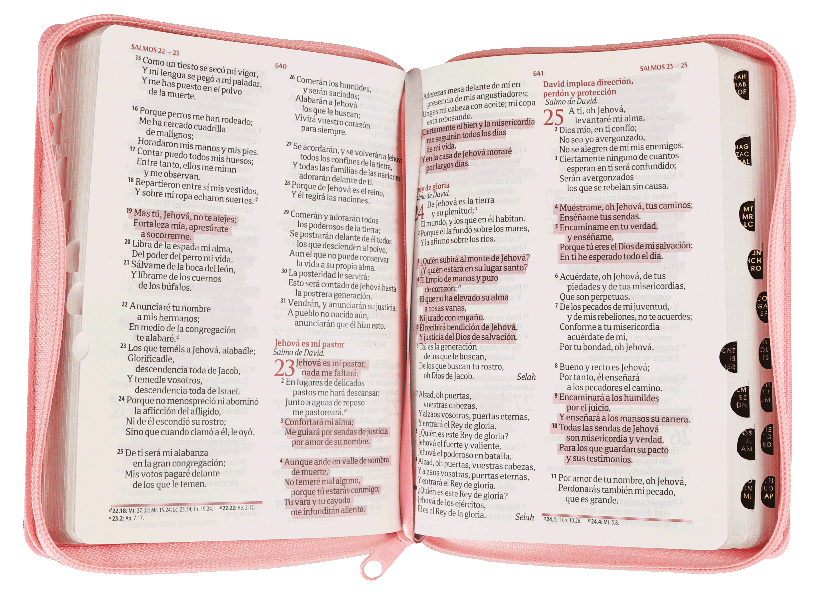 SALMOS 22 – 23
640
15 Como un tiesto se secó mi vigor,
Y mi lengua se pegó a mi paladar,
Y me has puesto en el polvo
de la muerte.
16 Porque perros me han rodeado;
Me ha cercado cuadrilla
de malignos;
Horadaron mis manos y mis pies.
17 Contar puedo todos mis huesos;
Entre tanto, ellos me miran
y me observan.
18 Repartieron entre sí mis vestidos,
Y sobre mi ropa echaron suertes.
19 Mas tú, Jehová, no te alejes;
Fortaleza mía, apresúrate
a socorrerme.
20 Libra de la espada mi alma,
Del poder del perro mi vida.
21 Sálvame de la boca del león,
Y líbrame de los cuernos
de los búfalos.
22 Anunciaré tu nombre
a mis hermanos;
En medio de la congregación
te alabaré.
23 Los que teméis a Jehová, alabadle;
Glorificadle,
descendencia toda de Jacob,
Y temedle vosotros,
descendencia toda de Israel.
24 Porque no menospreció ni abominó
la aflicción del afligido,
Ni de él escondió su rostro;
Sino que cuando clamó a él, le oyó.
25 De ti será mi alabanza
en la gran congregación;
Mis votos pagaré delante
de los que le temen.
26 Comerán los humildes,
y serán saciados;
Alabarán a Jehová
los que le buscan;
Vivirá vuestro corazón
para siempre.
27 Se acordarán, y se volverán a Jehová
todos los confines de la tierra,
Y todas las familias de las naciones
adorarán delante de ti.
28 Porque de Jehová es el reino,
Y él regirá las naciones.
29 Comerán y adorarán todos
los poderosos de la tierra;
Se postrarán delante de él todos
los que descienden al polvo,
Aun el que no puede conservar
la vida a su propia alma.
30 La posteridad le servirá;
Esto será contado de Jehová hasta
la postrera generación.
31 Vendrán, y anunciarán su justicia;
A pueblo no nacido aún,
anunciarán que él hizo esto.
Jehová es mi pastor
Salmo de David.
23 Jehová es mi pastor;
nada me faltará.
2 En lugares de delicados
pastos me hará descansar;
Junto a aguas de reposo
me pastoreará.
3 Confortará mi alma;
Me guiará por sendas de justicia
por amor de su nombre.
4 Aunque ande en valle de sombra
de muerte,
No temeré mal alguno,
porque tú estarás conmigo;
Tu vara y tu cayado
me infundirán aliento.
641
SALMOS 23 – 25
Aderezas mesa delante de mí en
presencia de mis angustiadores;
Unges mi cabeza con aceite; mi copa
está rebosando.
Ciertamente el bien y la misericordia
me seguirán todos los días
de mi vida,
Y en la casa de Jehová moraré
por largos días.
rey de gloria
Salmo de David.
De Jehová es la tierra
y su plenitud;
El mundo, y los que en él habitan.
2 Porque él la fundó sobre los mares,
Y la afirmó sobre los ríos.
3 ¿Quién subirá al monte de Jehová?
¿Y quién estará en su lugar santo?
4 El limpio de manos y puro
de corazón;
El que no ha elevado su alma
a cosas vanas,
Ni jurado con engaño.
5 Él recibirá bendición de Jehová,
Y justicia del Dios de salvación.
6 Tal es la generación
de los que le buscan,
De los que buscan tu rostro,
oh Dios de Jacob. Selah
7 Alzad, oh puertas,
vuestras cabezas,
Y alzaos vosotras, puertas eternas,
Y entrará el Rey de gloria.
8 ¿Quién es este Rey de gloria?
Jehová el fuerte y valiente,
Jehová el poderoso en batalla.
9 Alzad, oh puertas, vuestras cabezas,
Y alzaos vosotras, puertas eternas,
Y entrará el Rey de gloria.
¿Quién es este Rey de gloria?
Jehová de los ejércitos,
Él es el Rey de la gloria. Selah
David implora dirección,
perdón y protección
Salmo de David.
25 A ti, oh Jehová,
levantaré mi alma.
2 Dios mío, en ti confío;
No sea yo avergonzado,
No se alegren de mí mis enemigos.
3 Ciertamente ninguno de cuantos
esperan en ti será confundido;
Serán avergonzados
los que se rebelan sin causa.
4 Muéstrame, oh Jehová, tus caminos;
Enséñame tus sendas.
5 Encamíname en tu verdad,
y enséñame,
Porque tú eres el Dios de mi salvación;
En ti he esperado todo el día.
6 Acuérdate, oh Jehová, de tus
piedades y de tus misericordias,
Que son perpetuas.
7 De los pecados de mi juventud,
y de mis rebeliones, no te acuerdes;
Conforme a tu misericordia
acuérdate de mí,
Por tu bondad, oh Jehová.
8 Bueno y recto es Jehová;
Por tanto, él enseñará
a los pecadores el camino.
9 Encaminará a los humildes
por el juicio,
Y enseñará a los mansos su carrera.
10 Todas las sendas de Jehová
son misericordia y verdad,
Para los que guardan su pacto
y sus testimonios.
11 Por amor de tu nombre, oh Jehová,
Perdonarás también mi pecado,
que es grande.